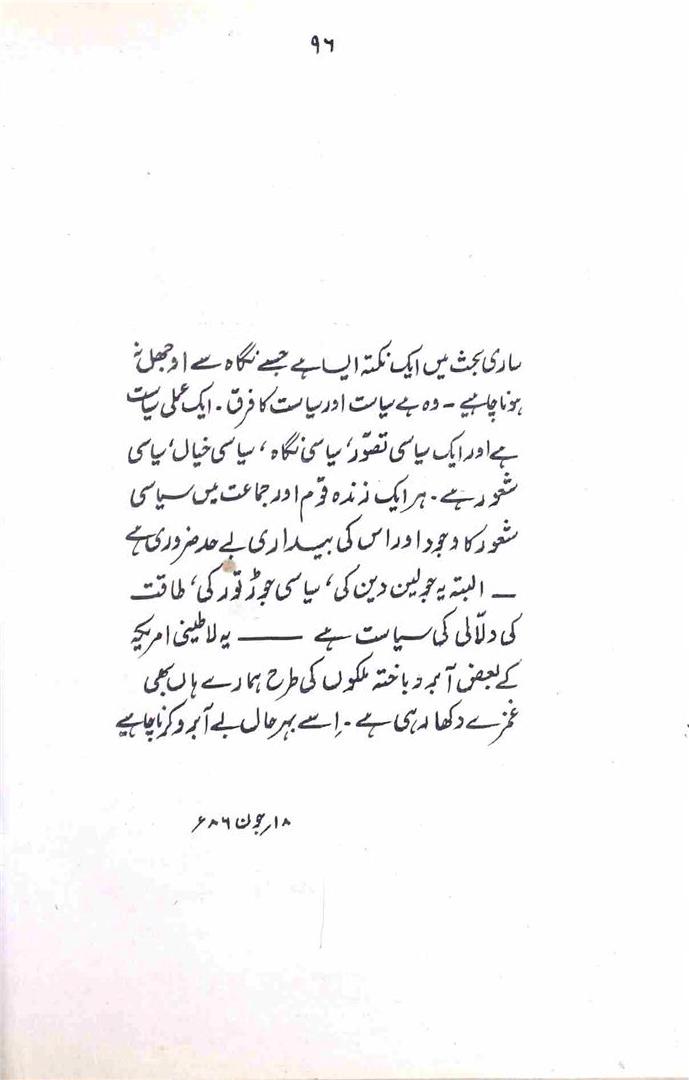 ۹۶
ساری بحث میں ایک نکتہ ایسا ہے جسے نگاہ سے اوجھل نہ
ہونا چاہیے ۔ وہ ہے سیاست اور سیاست کا فرق ۔ ایک عملی سیاست
ہے اور ایک سیاسی تصوّر، سیاسی نگاہ، سیاسی خیال، سیاسی
شعور ہے ۔ ہر ایک زندہ قوم اور جماعت میں سیاسی
شعور کا وجود اور اس کی بیداری بے حد ضروری ہے
— البتہ یہ جو لین دین کی، سیاسی جوڑ توڑ کی، طاقت
کی دلّالی کی سیاست ہے —— یہ لاطینی امریکہ
کے بعض آبرو باختہ ملکوں کی طرح ہمارے ہاں بھی
غمزے دکھا رہی ہے ۔ اِسے بہرحال بے آبرو کرنا چاہیے
۱۸؍ جون ۸۶ء